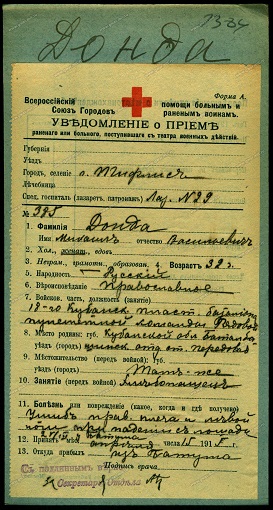 Донда
Форма А.
Всероссійскій
Союз Городов
помощи больным и
раненым воинам.
УВѢДОМЛЕНІЕ о ПРІЕМѢ
раненаго или больного, поступившаго с театра военных дѣйствій.
Губернія
Уѣзд
Город, селеніе г. Тифлис
Лѣчебница
Спец. госпиталь (лазарет, патронаж) Лаз. № 29
№ 395
1. Фамилія Донда
Имя Михаил отчество Васильевич
2. Хол., женат, вдов.
3. Неграм., грамотн., образован. 4. Возраст 32 г.
5. Народность Русскій
6. Вѣроисповѣданіе Православное
7. Войсков. часть, должность (занятіе)
18-го Кубанск. пласт. батальон
пулеметной команды
8. Мѣсто родины: губ. Кубанской обл.
уѣзд (город)
9. Мѣстожительство (перед войной): губ.
уѣзд (город) Там-же
10. Занятіе (перед войной) Хлѣбопашец
11. Болѣзнь или поврежденіе (какое, когда и гдѣ получено)
Ушиб прав. плеча и лѣвой
при паденіи с лошади
12. Принят: мѣс. апрѣля число 15 191 г.
13. Откуда прибыл из Батума
Подпись врача
С подлинным
Секретарь Отдѣла